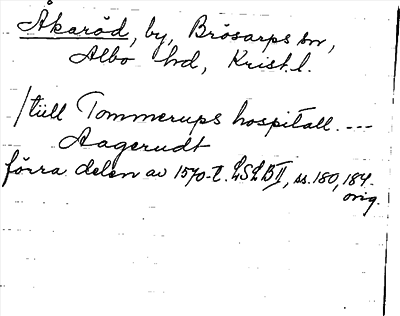 Åkaröd, by, Brösarps sn,
Albo hd, Krist. l.
/till Tommerups hospitall. ---
Aagerudt
förra delen av 1570-t. LSLB II, ss. 180, 184.
orig.